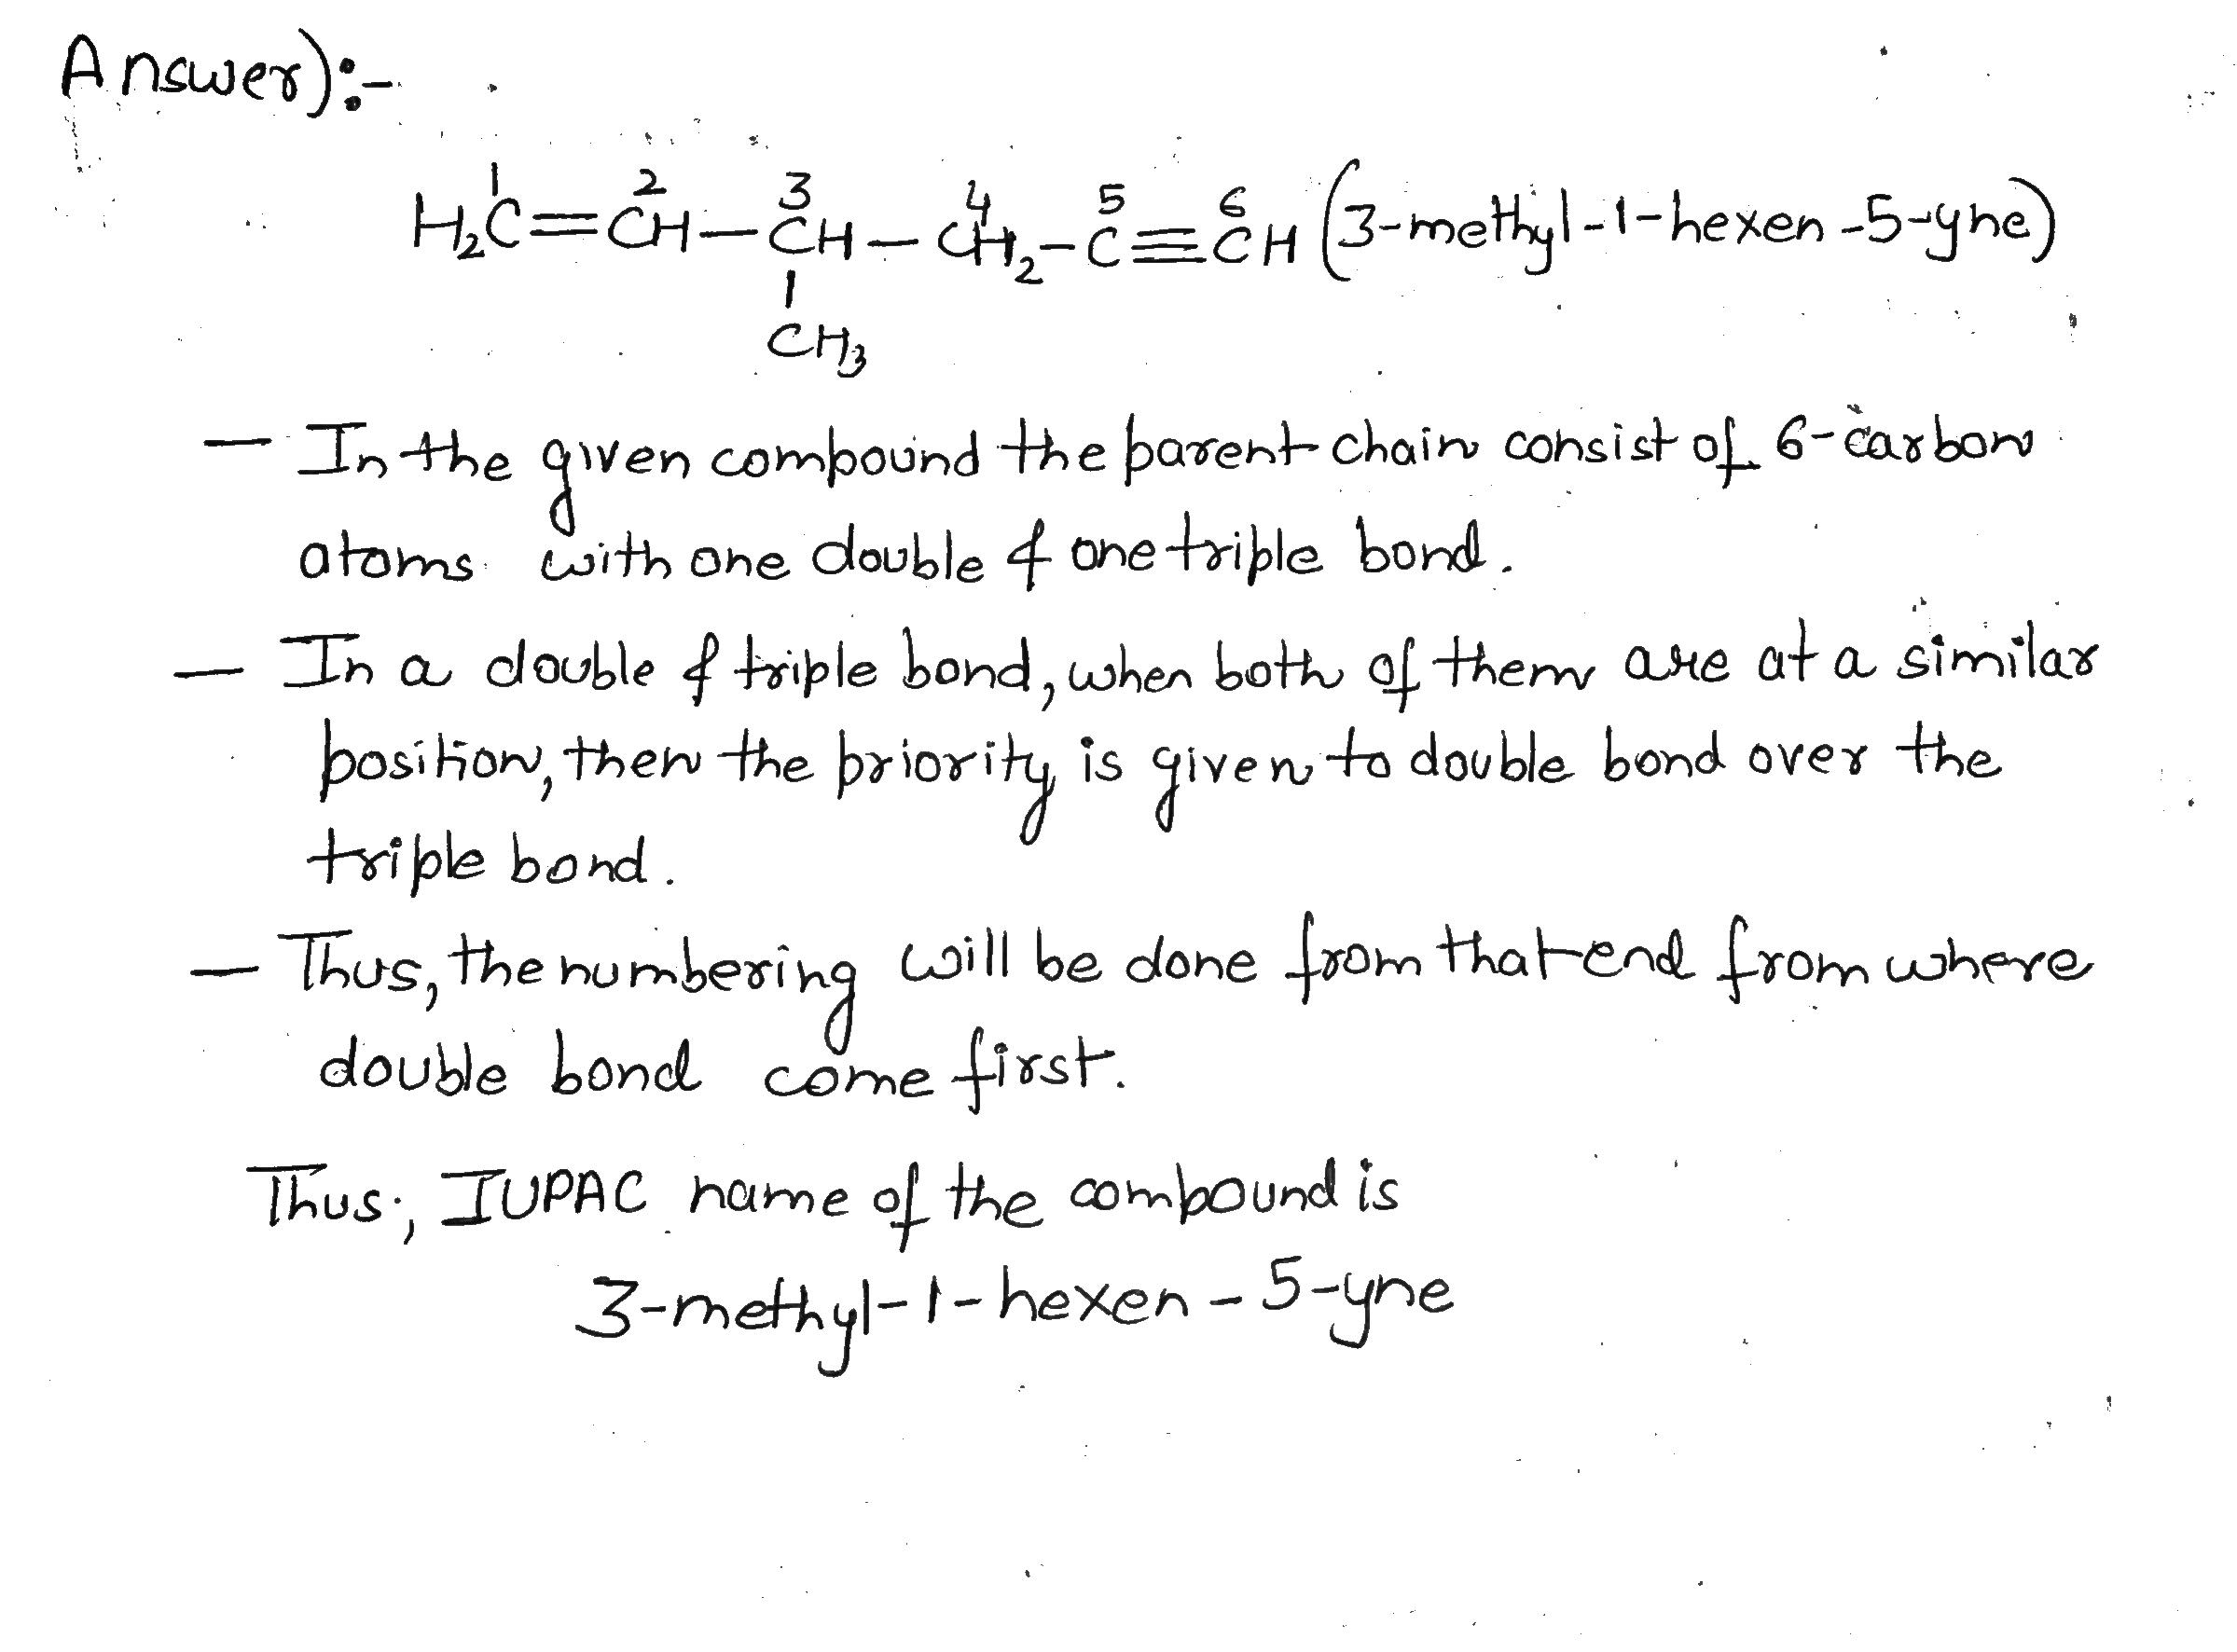 Answer):-
1 2 3 4 5 6
H₂C=CH-CH-CH₂-C≡CH (3-methyl-1-hexen-5-yne)
CH₃
- In the given compound the parent chain consist of 6-carbon
atoms with one double & one triple bond.
- In a double & triple bond, when both of them are at a similar
position, then the priority is given to double bond over the
triple bond.
- Thus, the numbering will be done from that end from where
double bond come first.
Thus;, IUPAC name of the compound is
3-methyl-1-hexen-5-yne